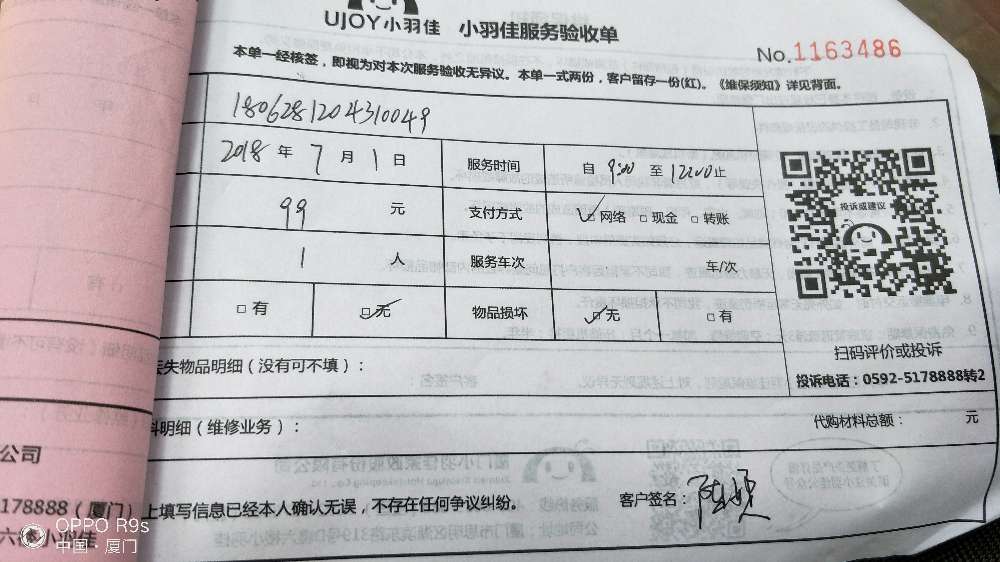 UJOY小羽佳 小羽佳服务验收单
No.1163486
本单一经核签，即视为对本次服务验收无异议。本单一式两份，客户留存一份(红)。《维保须知》详见背面。
1806281204310049
2018 年 7 月 1 日 服务时间 自 9:00 至 12:00 止
99 元 支付方式 网络 现金 转账
1 人 服务车次 车/次
有 无 物品损坏 无 有
投诉或建议
扫码评价或投诉
投诉电话：0592-5178888转2
失物品明细（没有可不填）：
料明细（维修业务）： 代购材料总额： 元
公司
178888（厦门）
上填写信息已经本人确认无误，不存在任何争议纠纷。 客户签名：
六楼小羽佳
OPPO R9s
中国·厦门